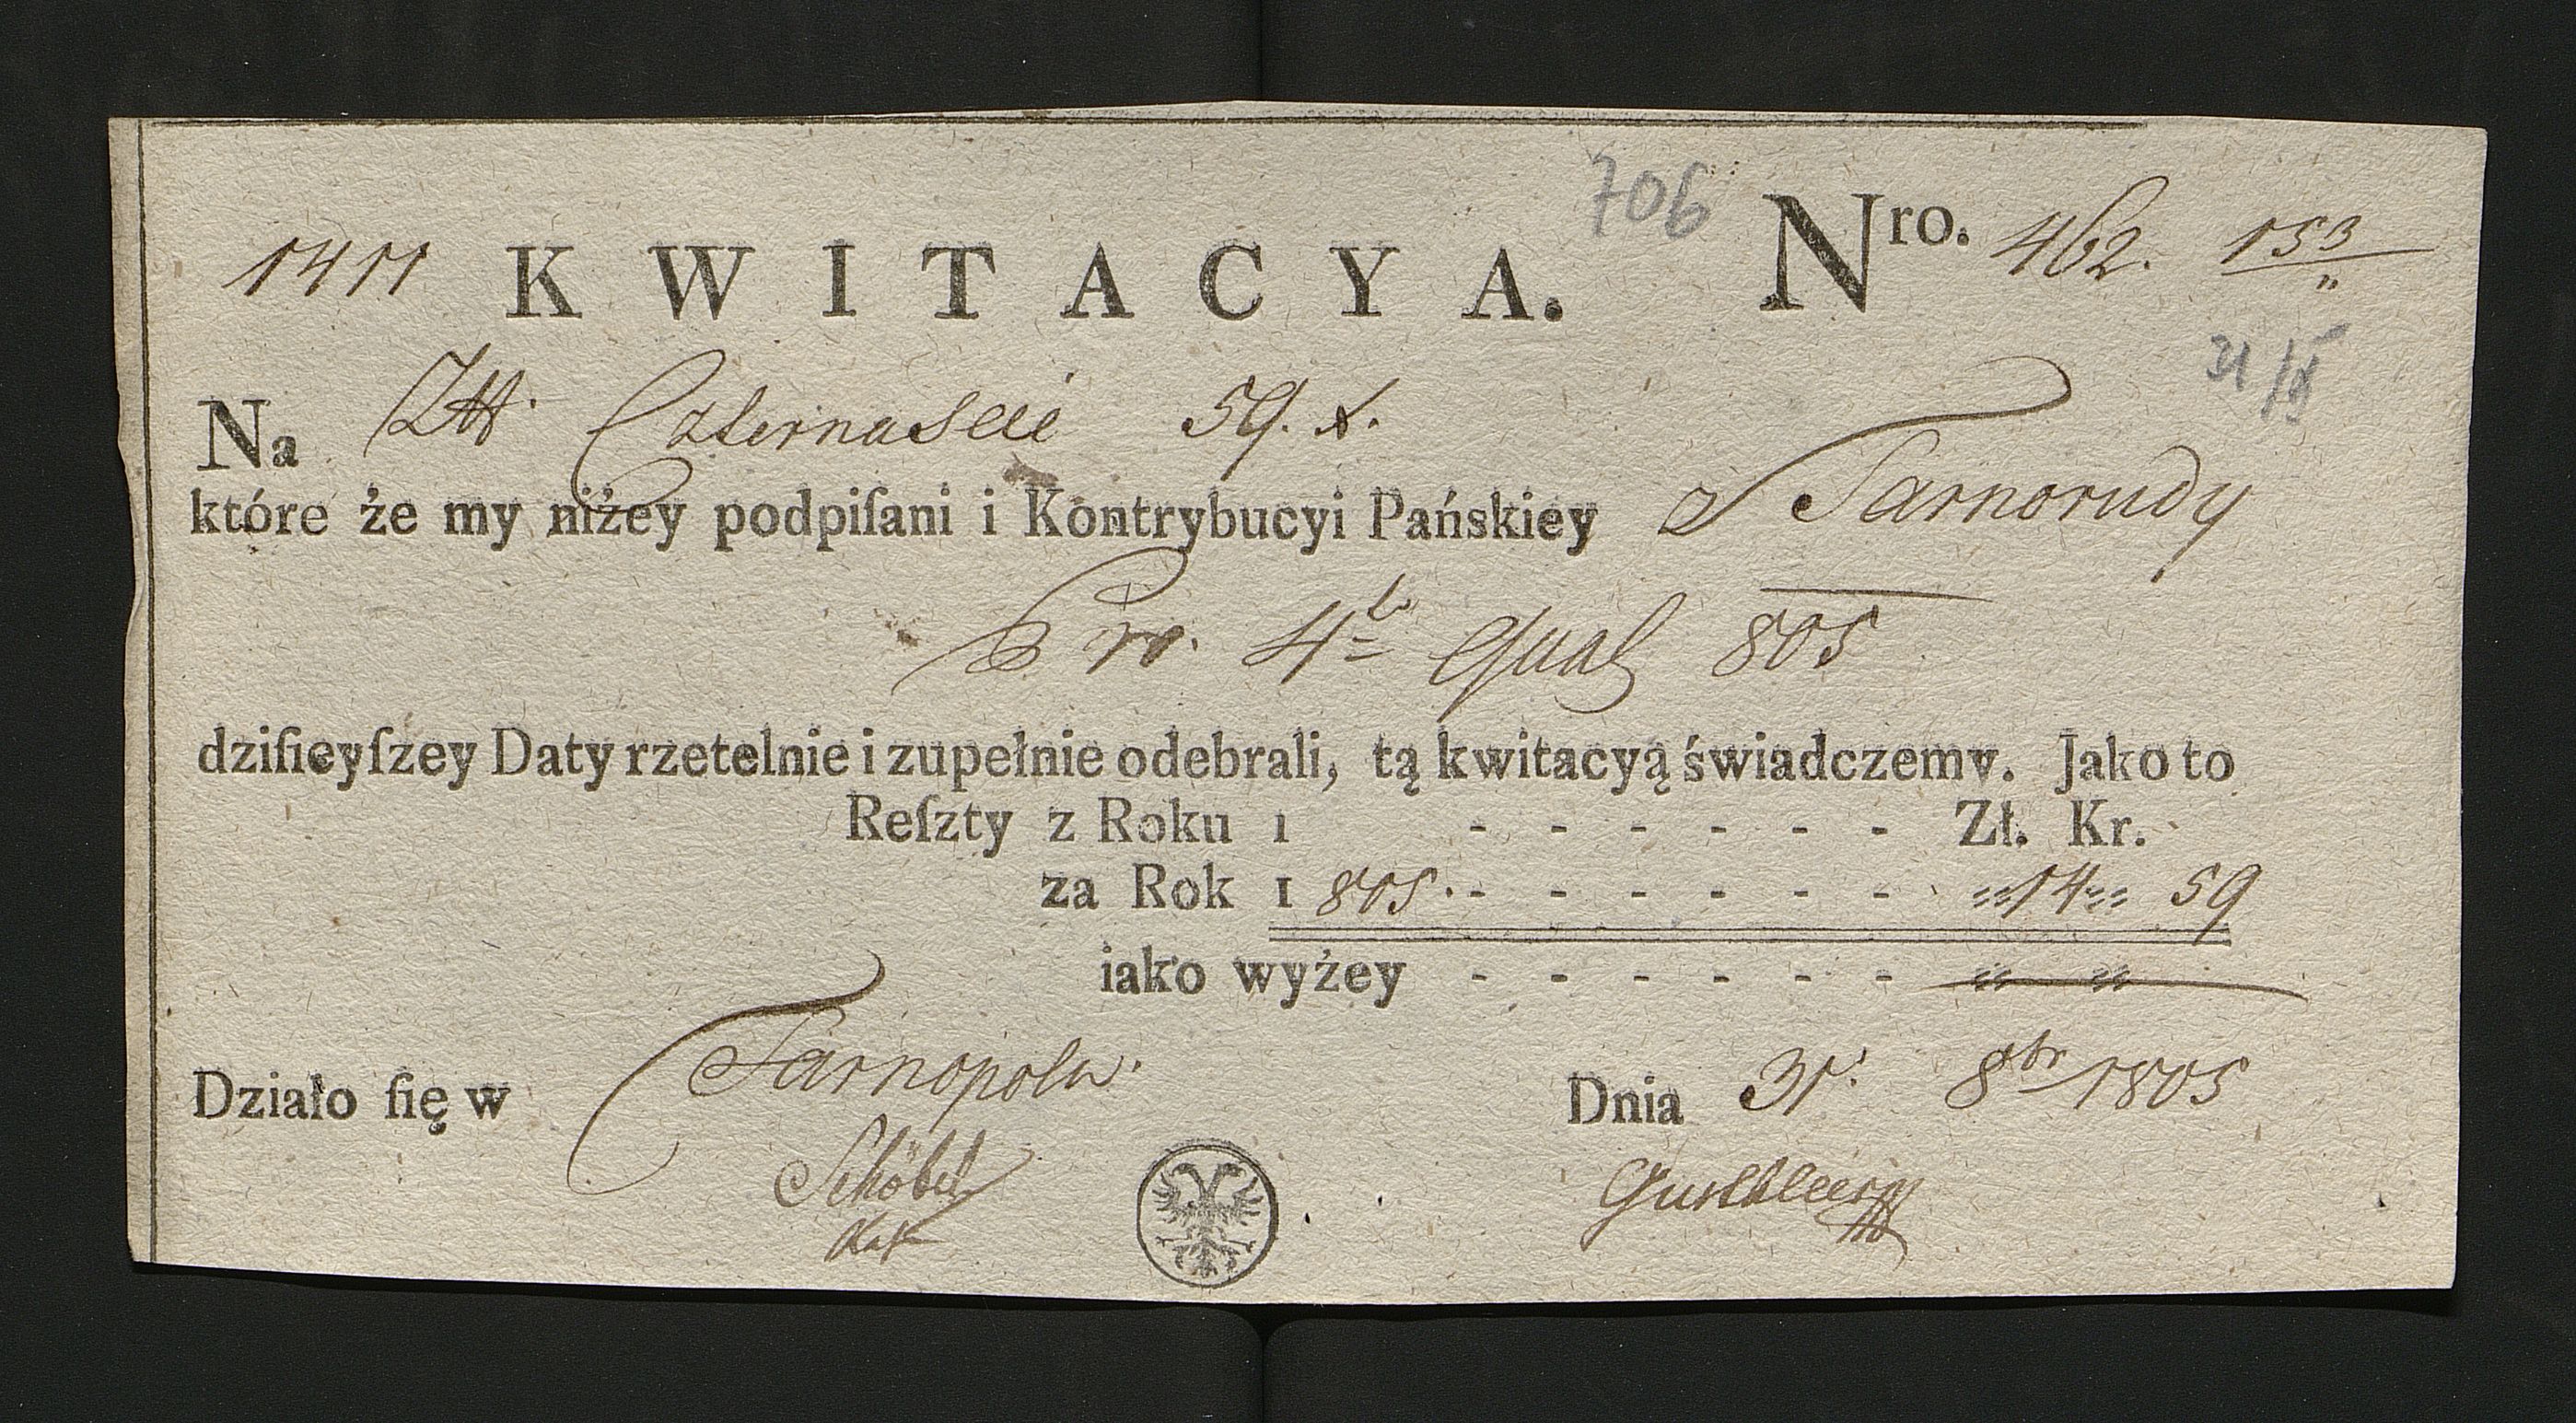 706
1411 KWITACYA. Nro. 462. 153
31/8
Na Złł. Czternascie 59. x.
które że my niżey podpiſani i Kontrybucyi Pańskiey z Tarnorudy
Pro. 4t Qual 805
dziſieyſzey Daty rzetelnie i zupełnie odebrali, tą kwitacyą świadczemy. Jako to
Reſzty z Roku 1 - - - - - - Zł. Kr.
za Rok 1805. - - - - - - „14„ 59
iako wyżey - - - - - - „ „
Działo ſię w Tarnopolu. Dnia 31. 8br 1805
Schöbel